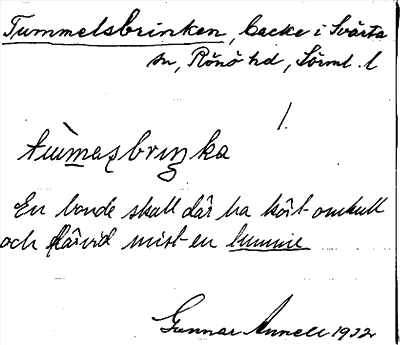 Tummelsbrinken, backe i Svärta
sn, Rönö hd, Sörml. l
1.
tùmasbriŋka
En bonde skall där ha kört omkull
och därvid mist en tumme
Gunnar Annell 1932